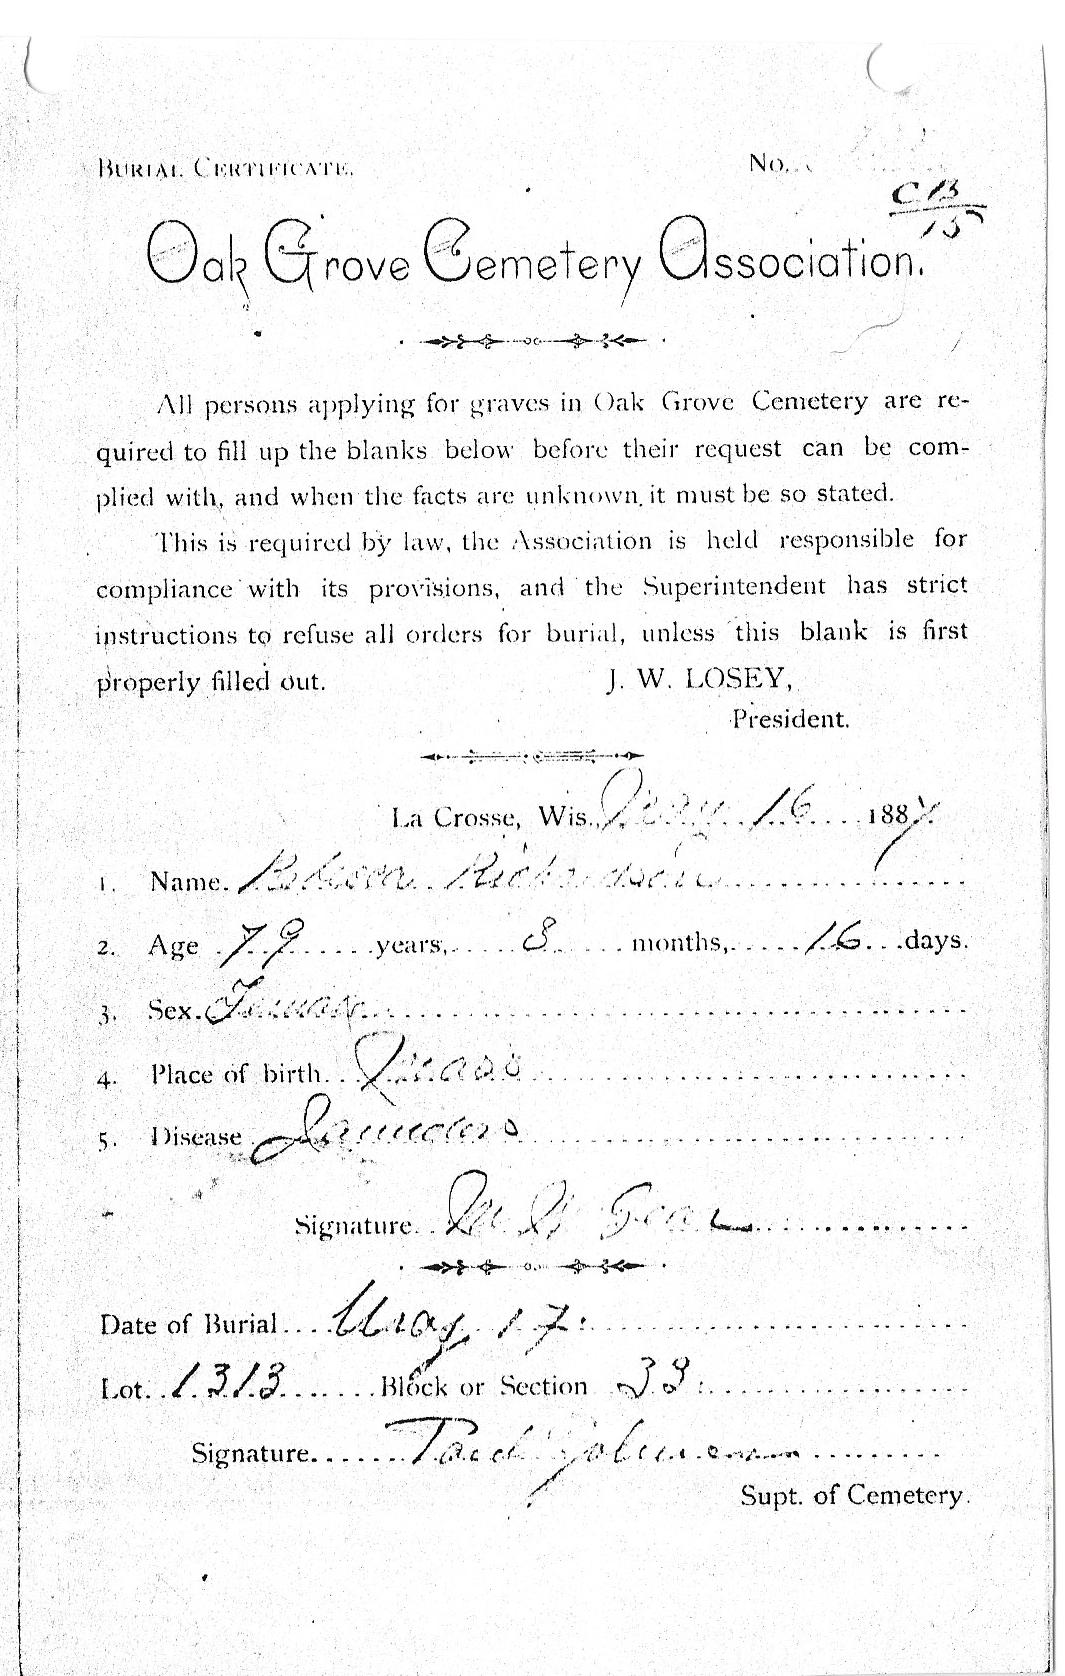 BURIAL CERTIFICATE. No.
C B
15
Oak Grove Cemetery Association.
All persons applying for graves in Oak Grove Cemetery are re-
quired to fill up the blanks below before their request can be com-
plied with, and when the facts are unknown, it must be so stated.
This is required by law, the Association is held responsible for
compliance with its provisions, and the Superintendent has strict
instructions to refuse all orders for burial, unless this blank is first
properly filled out. J. W. LOSEY,
President.
La Crosse, Wis., May 16 1887.
1. Name. Richardson
2. Age 79 years, 8 months, 16 days.
3. Sex. Female
4. Place of birth Mass
5. Disease Jaunders
Signature.
Date of Burial May 17.
Lot. 1313 Block or Section 33
Signature
Supt. of Cemetery.